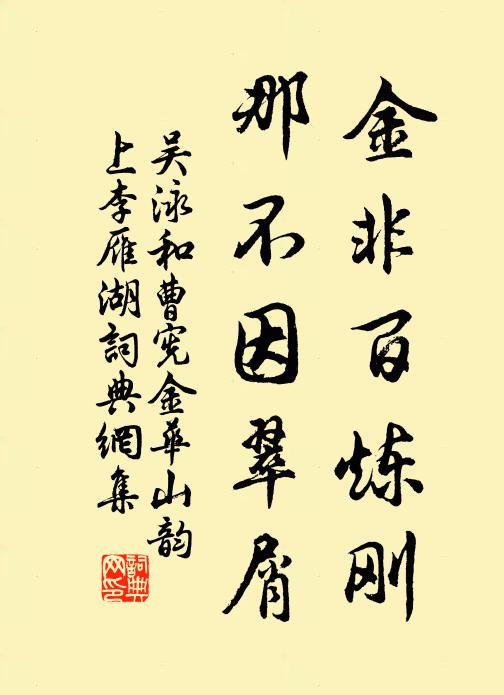 金非百炼刚
那不因翠屑
吴泳和曹宪金华山韵
上李雁湖詞典網集
詞典
网印